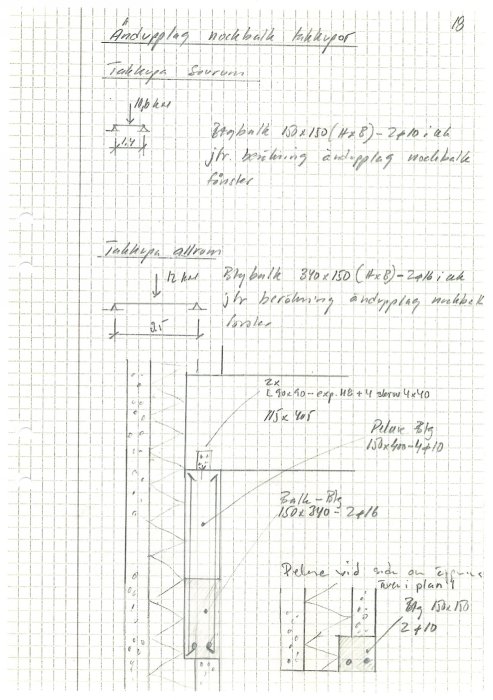 18
Ändupplag nockbalk takkupor
Takkupa Sovrum
10,0 kN
1.4
Btgbalk 150x150 (HxB) - 2ϕ10 i uk
jfr. beräkning ändupplag nockbalk
fönster
Takkupa allrum
12 kN
2.5
Btgbalk 340x150 (HxB) - 2ϕ16 i uk
jfr beräkning ändupplag nockbalk
fönster
2x
L 90x90 - exp. M8 + 4 skruv 4x40
115x405
Pelare Btg
150x400 - 4ϕ10
Balk - Btg
150x340 - 2ϕ16
Pelare vid sida om
i plan 1
Btg 150x150
2ϕ10